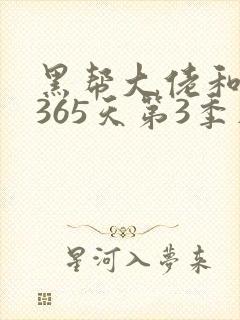 黑帮大佬和
365天第3季
星河入夢来